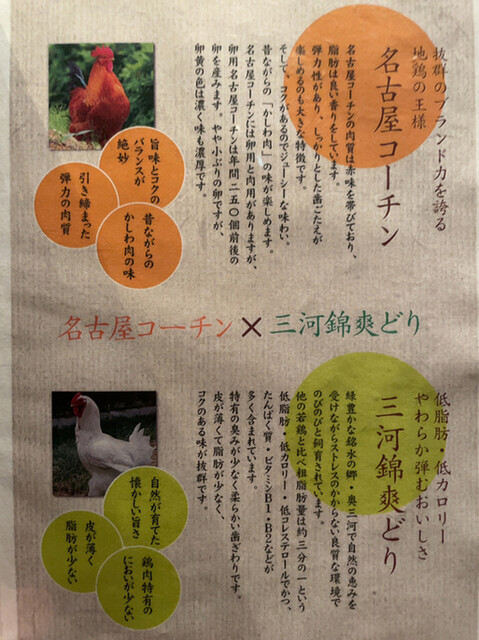 抜群のブランド力を誇る
地鶏の王様
名古屋コーチン
名古屋コーチンの肉質は赤味を帯びており、
脂肪は良い香りをしています。
弾力性があり、しっかりとした歯ごたえが
楽しめるのも大きな特徴です。
そして、コクがあるのでジューシーな味わい、
昔ながらの「かしわ肉」の味が楽しめます。
名古屋コーチンには卵用と肉用がありますが、
卵用名古屋コーチンは年間二五〇個前後の
卵を産みます。やや小ぶりの卵ですが、
卵黄の色は濃く味も濃厚です。
旨味とコクの
バランスが
絶妙
引き締まった
弾力の肉質
昔ながらの
かしわ肉の味
名古屋コーチン×三河錦爽どり
低脂肪・低カロリー
やわらか弾むおいしさ
三河錦爽どり
緑豊かな銘水の郷・奥三河で自然の恵みを
受けながらストレスのかからない良質な環境で
のびのびと飼育されています。
他の若鶏と比べ粗脂肪量は約三分の一という
低脂肪・低カロリー・低コレステロールでかつ、
たんぱく質・ビタミンB1・B2などが
多く含まれています。
特有の臭みが少なく柔らかい歯ざわりです。
皮が薄くて脂肪が少なく、
コクのある味が抜群です。
自然が育てた
懐かしい旨さ
皮が薄く
脂肪が少ない
鶏肉特有の
においが少ない